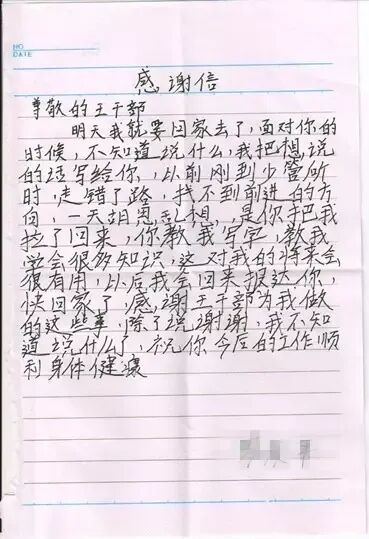 NO
DATE
感谢信
尊敬的王干部
明天我就要回家去了,面对你的
时候,不知道说什么,我把想说
的话写给你,以前刚到少管所
时,走错了路,找不到前进的方
向,一天胡思乱想,是你把我
拉了回来,你教我写字,教我
学会很多知识,这对我的将来会
很有用,以后我会回来报达你,
快回家了,感谢王干部为我做
的这些事,除了说谢谢,我不知
道说什么了,祝你今后的工作顺
利身体健康